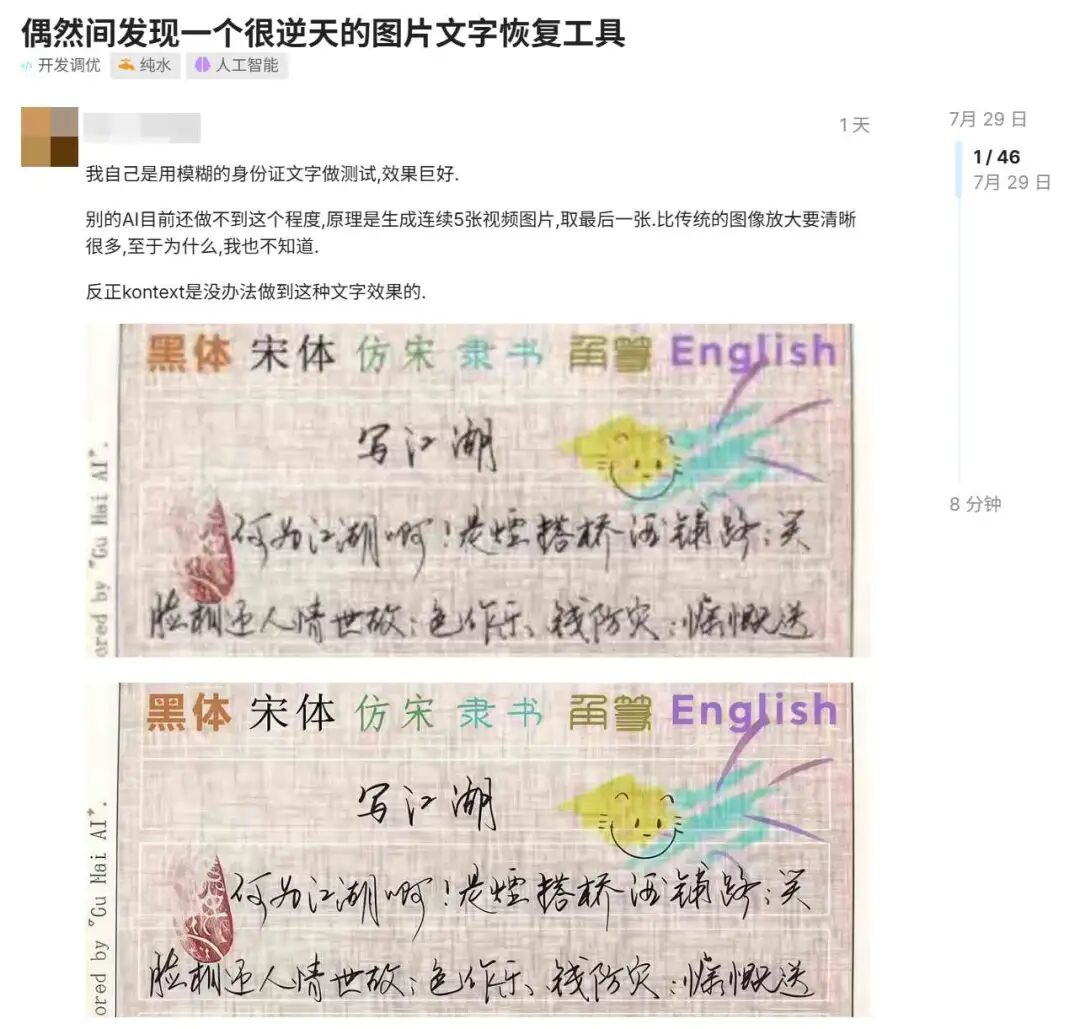 偶然间发现一个很逆天的图片文字恢复工具
开发调优 纯水 人工智能
1 天
我自己是用模糊的身份证文字做测试,效果巨好.
别的AI目前还做不到这个程度,原理是生成连续5张视频图片,取最后一张.比传统的图像放大要清晰
很多,至于为什么,我也不知道.
反正kontext是没办法做到这种文字效果的.
7月 29 日
1 / 46
7月 29 日
8 分钟
黑体 宋体 仿宋 隶书 English
写江湖
何为江湖啊!是烟搭桥酒铺路;笑
脸相迎人情世故;色作乐、钱防灾;慷慨送
ored by "Gu Hai AI".
黑体 宋体 仿宋 隶书 English
写江湖
何为江湖啊!是烟搭桥酒铺路;笑
脸相迎人情世故;色作乐、钱防灾;慷慨送
ored by "Gu Hai AI".